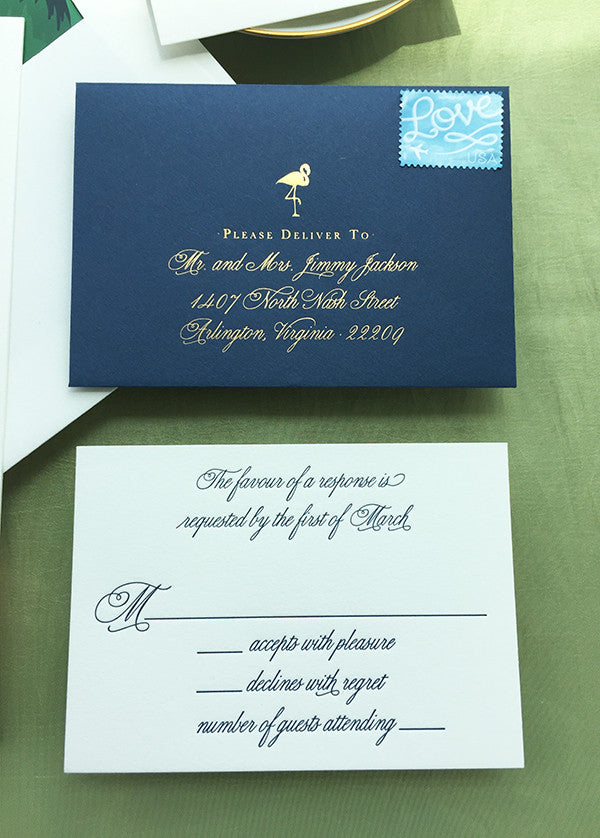 Love
USA
·Please Deliver To·
Mr. and Mrs. Jimmy Jackson
1407 North Nash Street
Arlington, Virginia · 22209
The favour of a response is
requested by the first of March
M
accepts with pleasure
declines with regret
number of guests attending